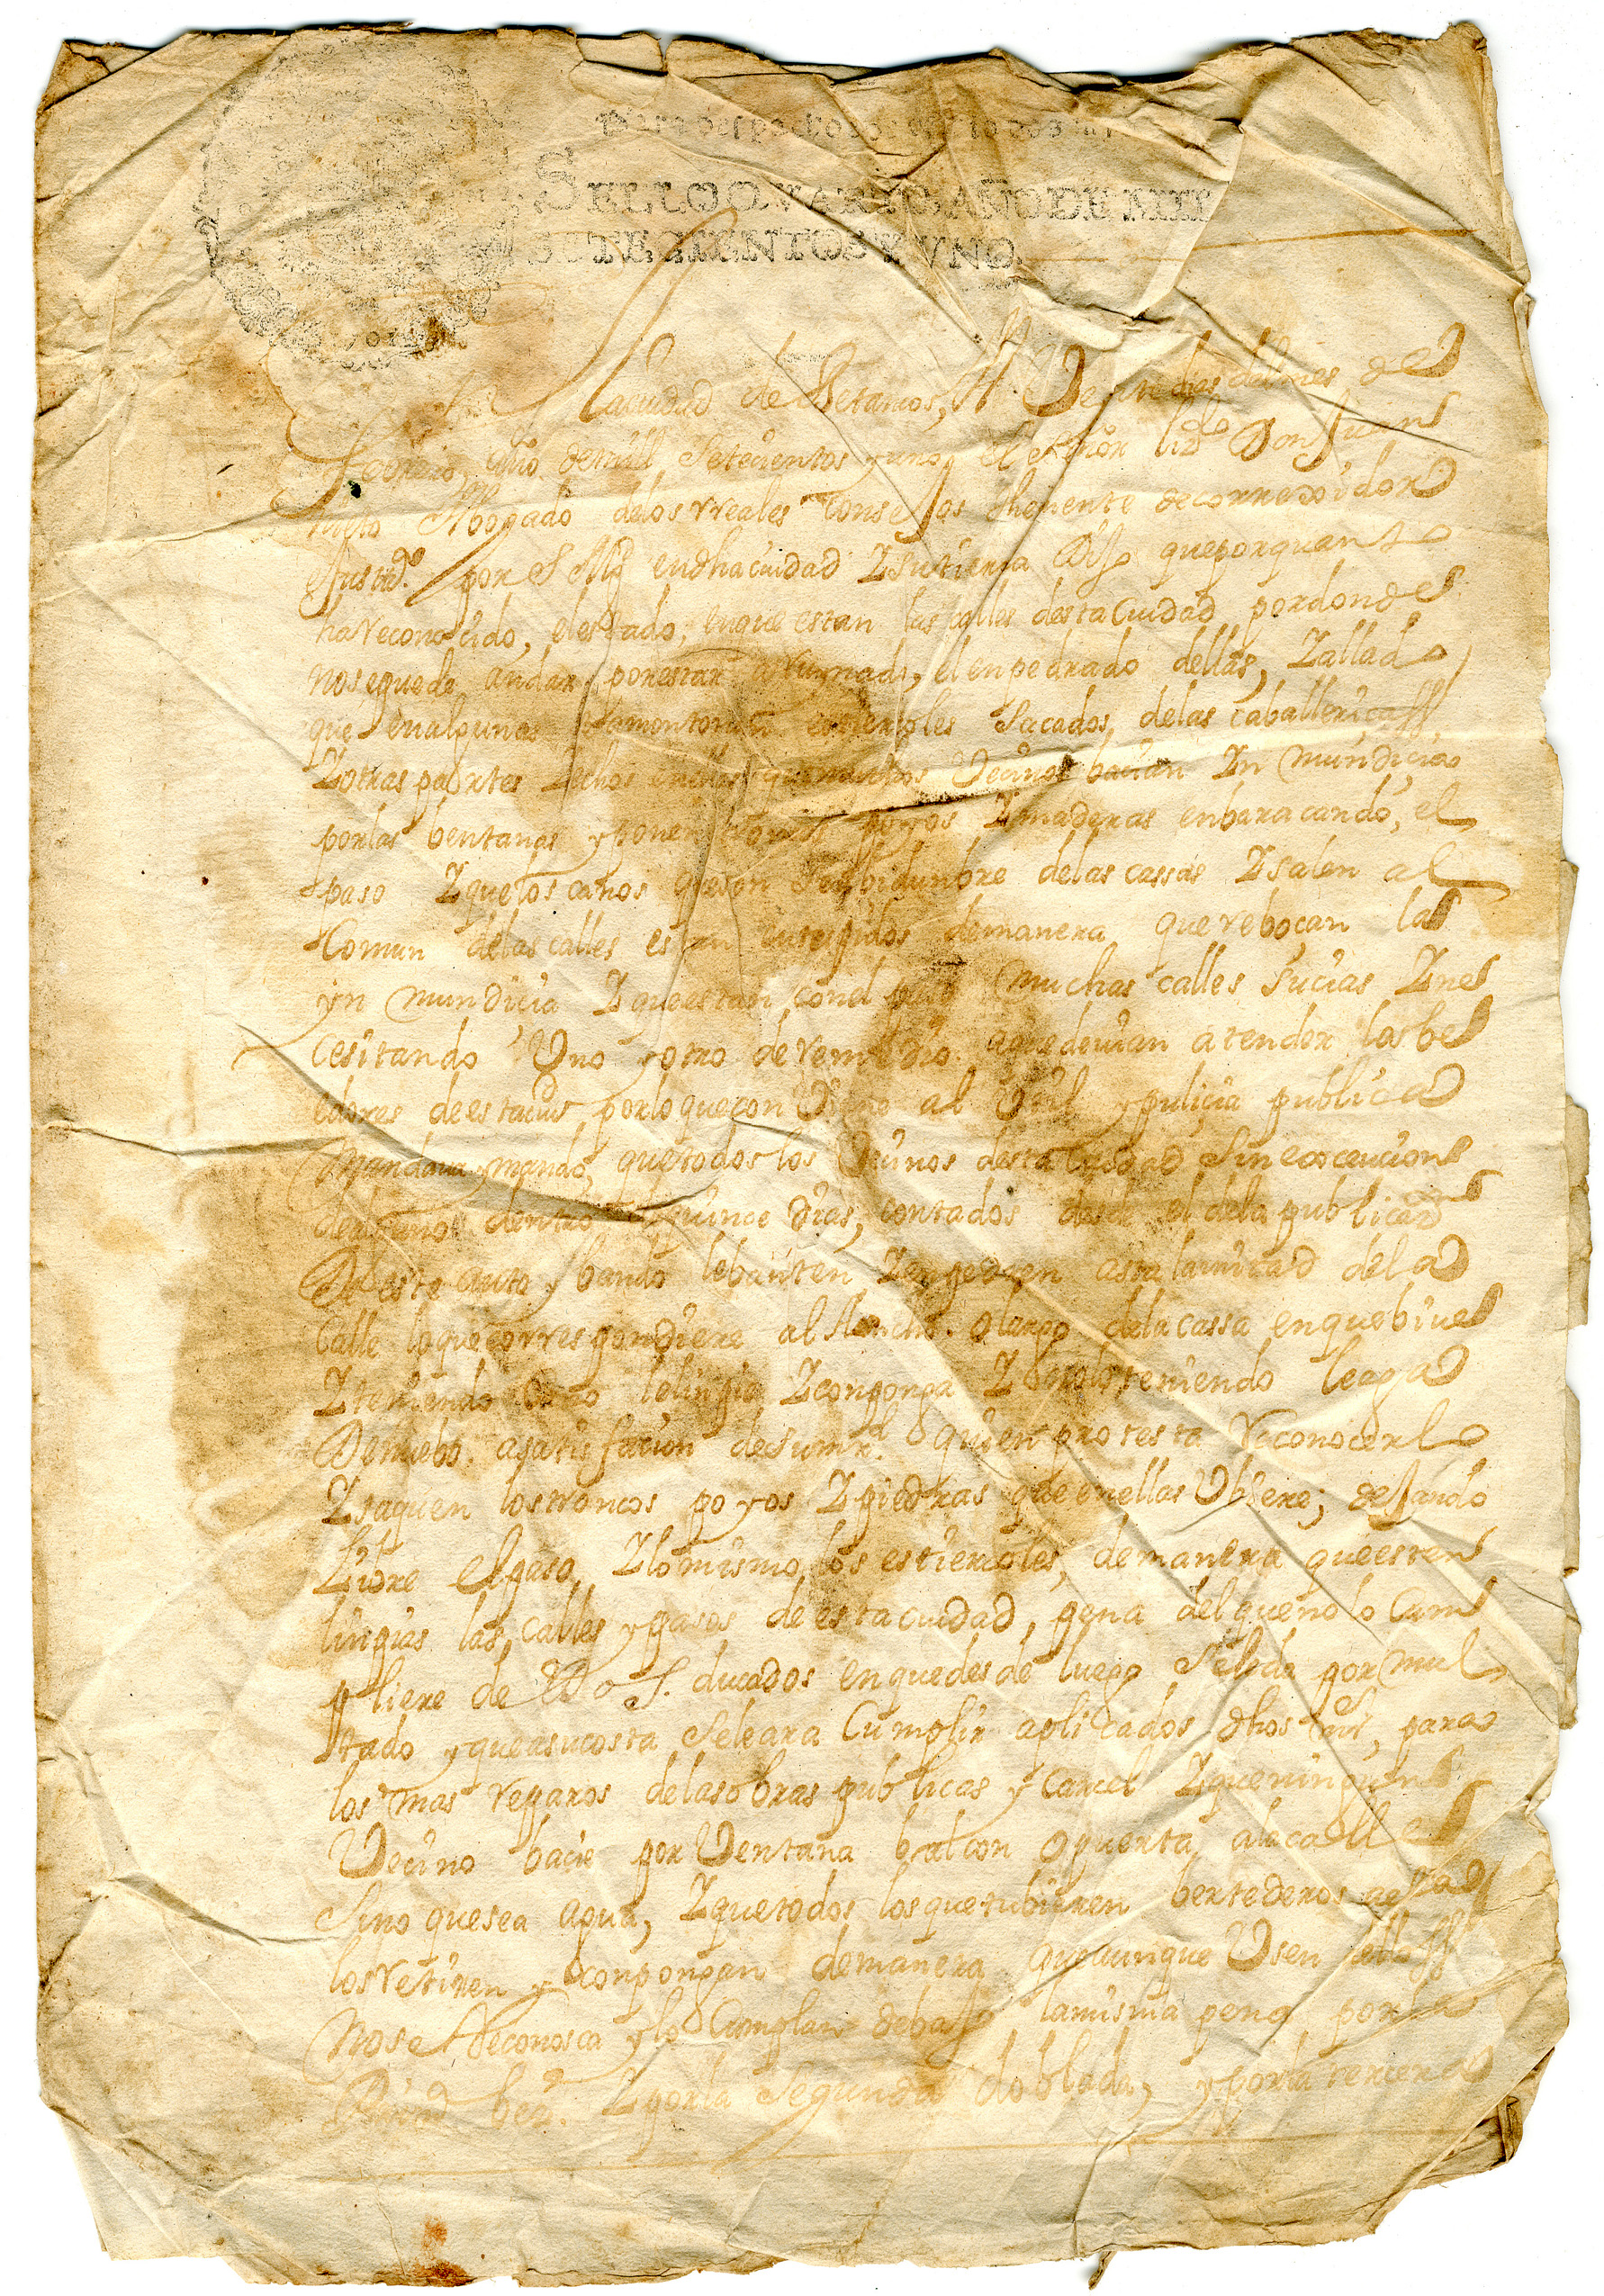 Para despachos de
SELLO QVARTO, AÑO DE MIL
SETECIENTOS Y VNO.
la ciudad de Betancos, A dias del mes de
febrero, año de mill Setecientos y uno, el señor lizdo Don Juan
Abogado de los rreales Consejos theniente de correxidor
por S Mg en dha ciudad Z su tierra Dijo que por quanto
ha reconocido, el estado, en que estan las calles desta Ciudad por donde
no se puede andar, por estar arruynado, el enpedrado dellas, Z allado
que en algunas amontonan estiercoles sacados de las caballeriças
Z otras partes muchos Vecinos bacian Zn mundicias
por las bentanas y ponen poyos Z maderas enbaracando, el
paso Z que los caños que son serbidunbre de las cassas Z salen al
Comun de las calles estan demanera que rebocan las
yn mundicia Z que estan con el muchas calles sucias Z ne
cesitando Uno y otro de remedio a que devian atender los be
edores de esta ciud por lo que con Viene al Util y puliçia publica
Mandava y mando, que todos los Vecinos desta Ciudad Sin excecucion
de algunos dentro de quince dias, contados desde el de la publicaon
De este auto y bando lebanten Z enpedren asta la mitad de la
Calle lo que correspondiere al Ancho o largo de la cassa en que bive
Z teniendo lo linpie Z conponga Z no lo teniendo le aga
De nuebo a satisfacion de su mrd. quien protesta reconocerlo
Z saquen los troncos poyos Z piedras que en ellas Ubiere; dejando
Libre el paso Z lo mismo los estiercoles, de manera que esten
linpias las calles y pasos de esta ciudad, pena del que no lo Cum
pliere de Dos ducados en que desde luego Se le da por mul
tado y que a su costa Se le ara Cumplir aplicados dhos mrs, para
los mas reparos de las obras publicas y carcel Z que ningun
Vecino bacie por Ventana balcon o puerta, a la calle
Sino que sea agua, Z que todos los que tubieren bertederos
los retiren y conpongan de manera que aunque Usen dellos
No se Reconosca y lo Cumplan debajo la misma pena por la
Primera bez. Z por la Segunda doblada, y por la tercera